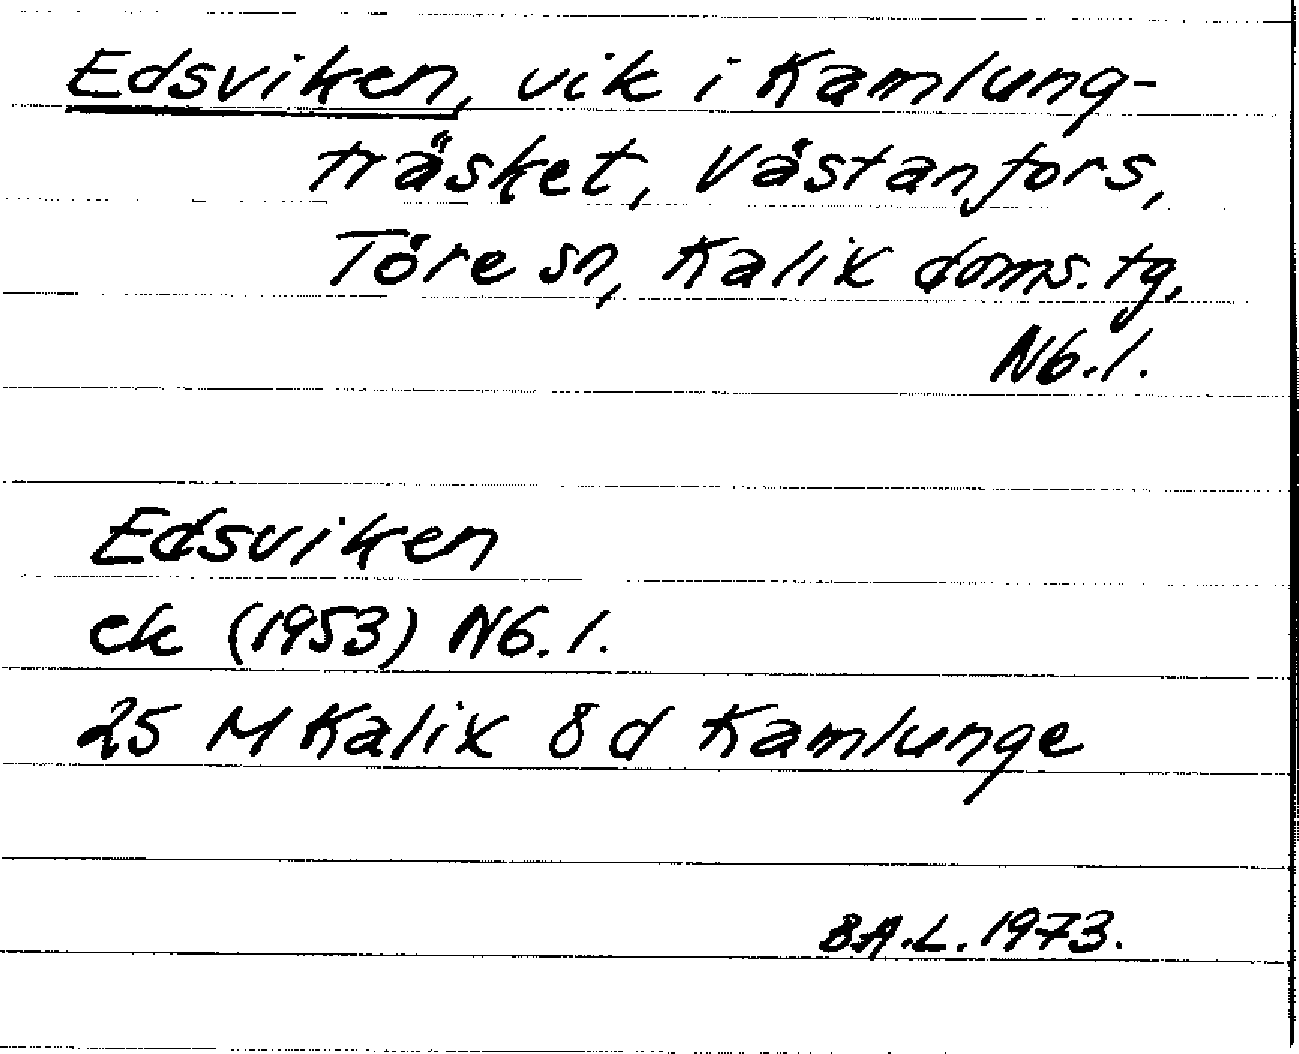 Edsviken, vik i Kamlung-
träsket, Västanfors,
Töre sn, Kalix doms.tg,
Nb.l.
Edsviken
ek (1953) Nb.l.
25 M Kalix 8 d Kamlunge
BA.L. 1973.